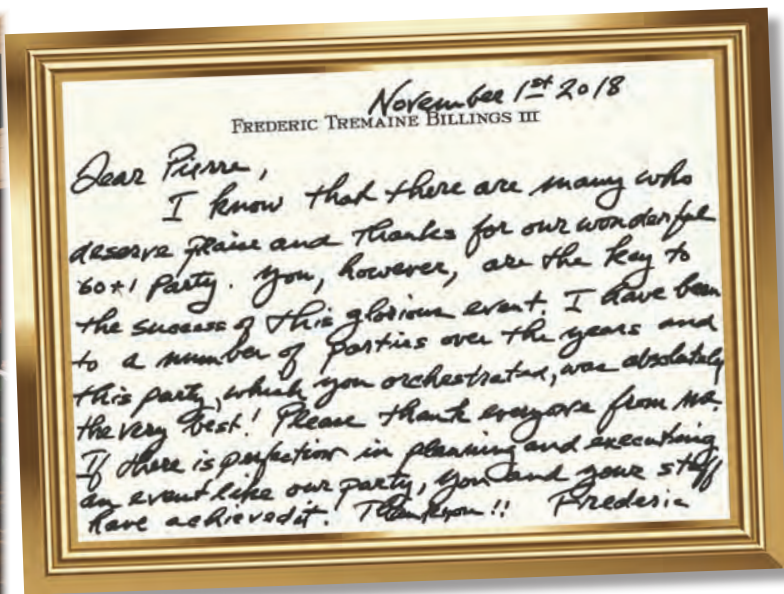 November 1st 2018
FREDERIC TREMAINE BILLINGS III
Dear Pierre,
I know that there are many who
deserve praise and thanks for our wonderful
60+1 party. You, however, are the key to
the success of this glorious event. I have been
to a number of parties over the years and
this party, which you orchestrated, was absolutely
the very best! Please thank everyone from me.
If there is perfection in planning and executing
an event like our party, you and your staff
have achieved it. Thank you!! Frederic